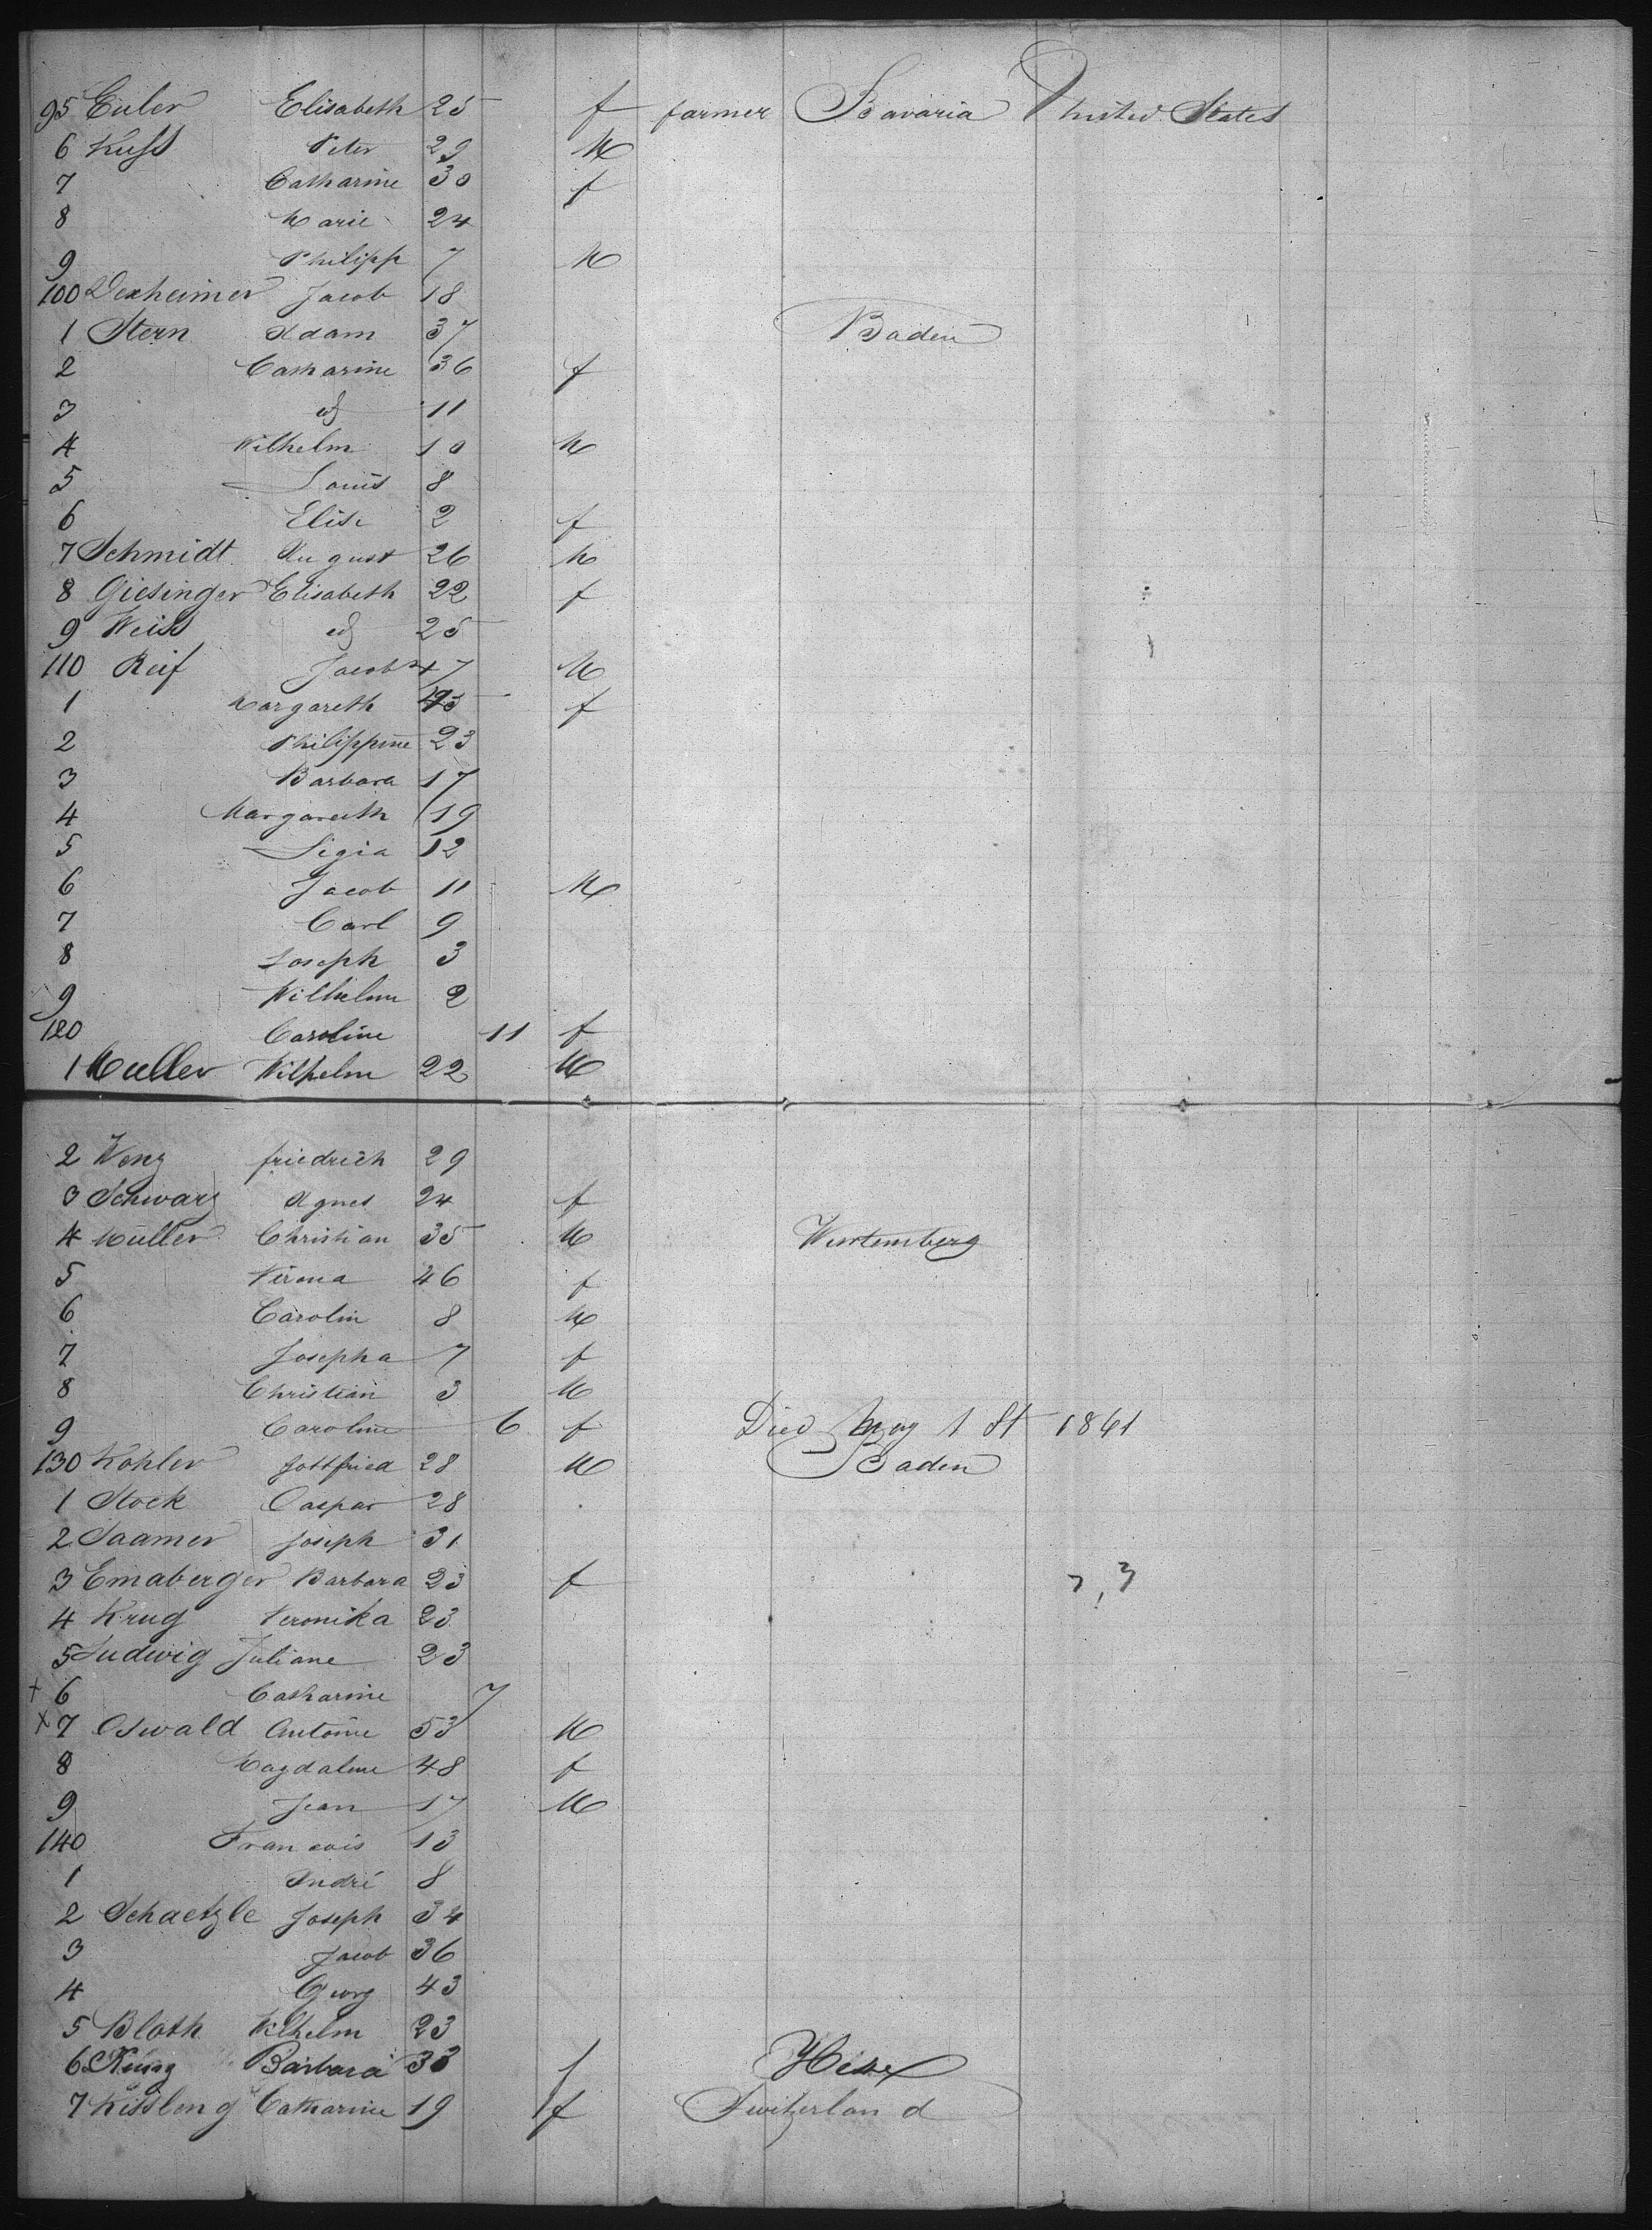 95 Euler Elisabeth 25 f farmer Bavaria United States
6 Kuss Peter 29 M
7 Catharine 30 f
8 Marie 24
9 Philipp 7 M
100 Dexheimer Jacob 18
1 Stern Adam 37 Baden
2 Catharine 36 f
3 id 11
4 Wilhelm 10 M
5 Louis 8
6 Elise 2 f
7 Schmidt August 26 M
8 Giesinger Elisabeth 22 f
9 Weiss id 25
110 Reif Jacob 47 M
1 Margareth 45 f
2 Philippine 23
3 Barbara 17
4 Margareth 19
5 Ligia 12
6 Jacob 11 M
7 Carl 9
8 Joseph 3
9 Wilhelm 2
120 Caroline 11 f
1 Muller Wilhelm 22 M
2 Wenz friedrich 29
3 Schwarz Agnes 24 f
4 Müller Christian 35 M Wurtemberg
5 Verona 46 f
6 Carolin 8 M
7 Josepha 7 f
8 Christian 3 M
9 Caroline 6 f Died May 1 st 1861
130 Kohler Gottfried 28 M Baden
1 Stock Caspar 28
2 Saamer Joseph 31
3 Emaberger Barbara 23 f
4 Krug Veronika 23
5 Ludwig Juliane 23
+ 6 Catharine 7
x 7 Oswald Antoine 53 M
8 Magdalene 48 f
9 Jean 17 M
140 Francois 13
1 André 8
2 Schaetzle Joseph 34
3 Jacob 36
4 Georg 43
5 Bloth Wilhelm 23
6 Barbara 33 f Hesse
7 Kissleng Catharine 19 f Switzerland